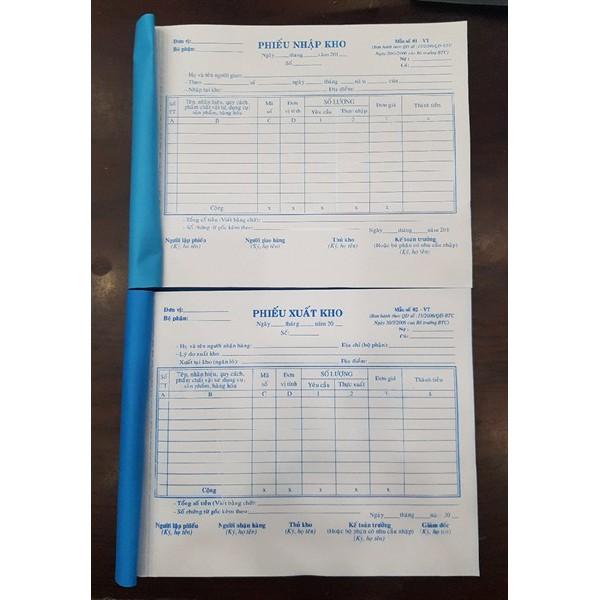 Đơn vị:
Bộ phận:
PHIẾU NHẬP KHO
Mẫu số 01 - VT
Ngày tháng năm 201
Số
Nợ :
Có:
- Họ và tên người giao:
- Theo số ngày tháng của
- Nhập tại kho: Địa điểm:
Số TT
Tên, nhãn hiệu, quy cách,
phẩm chất vật tư, dụng cụ
sản phẩm, hàng hóa
Mã số
Đơn vị tính
SỐ LƯỢNG
Yêu cầu Thực nhập
Đơn giá
Thành tiền
A B C D 1 2 3 4
Cộng x x x x
- Tổng số tiền (Viết bằng chữ):
- Số chứng từ gốc kèm theo:
Ngày tháng năm 201
Người lập phiếu Người giao hàng Thủ kho Kế toán trưởng
(Ký, họ tên) (Ký, họ tên) (Ký, họ tên) (Hoặc bộ phận có nhu cầu nhập)
(Ký, họ tên)
Đơn vị:
Bộ phận:
PHIẾU XUẤT KHO
Mẫu số 02 - VT
(Ban hành theo QĐ số : 15/2006/QĐ-BTC
Ngày 20/3/2006 của Bộ trưởng BTC)
Ngày tháng năm 20
Số:
Nợ:
Có:
- Họ và tên người nhận hàng: Địa chỉ (bộ phận):
- Lý do xuất kho
- Xuất tại kho (ngăn lô): Địa điểm:
Số TT
Tên, nhãn hiệu, quy cách,
phẩm chất vật tư dụng cụ,
sản phẩm, hàng hóa
Mã số
Đơn vị tính
SỐ LƯỢNG
Yêu cầu Thực xuất
Đơn giá
Thành tiền
A B C D 1 2 3 4
Cộng x x x x
- Tổng số tiền (Viết bằng chữ):
- Số chứng từ gốc kèm theo:
Ngày tháng năm 20
Người lập phiếu Người nhận hàng Thủ kho Kế toán trưởng Giám đốc
(Ký, họ tên) (Ký, họ tên) (Ký, họ tên) (Hoặc bộ phận có nhu cầu nhập) (Ký, họ tên)
(Ký, họ tên)